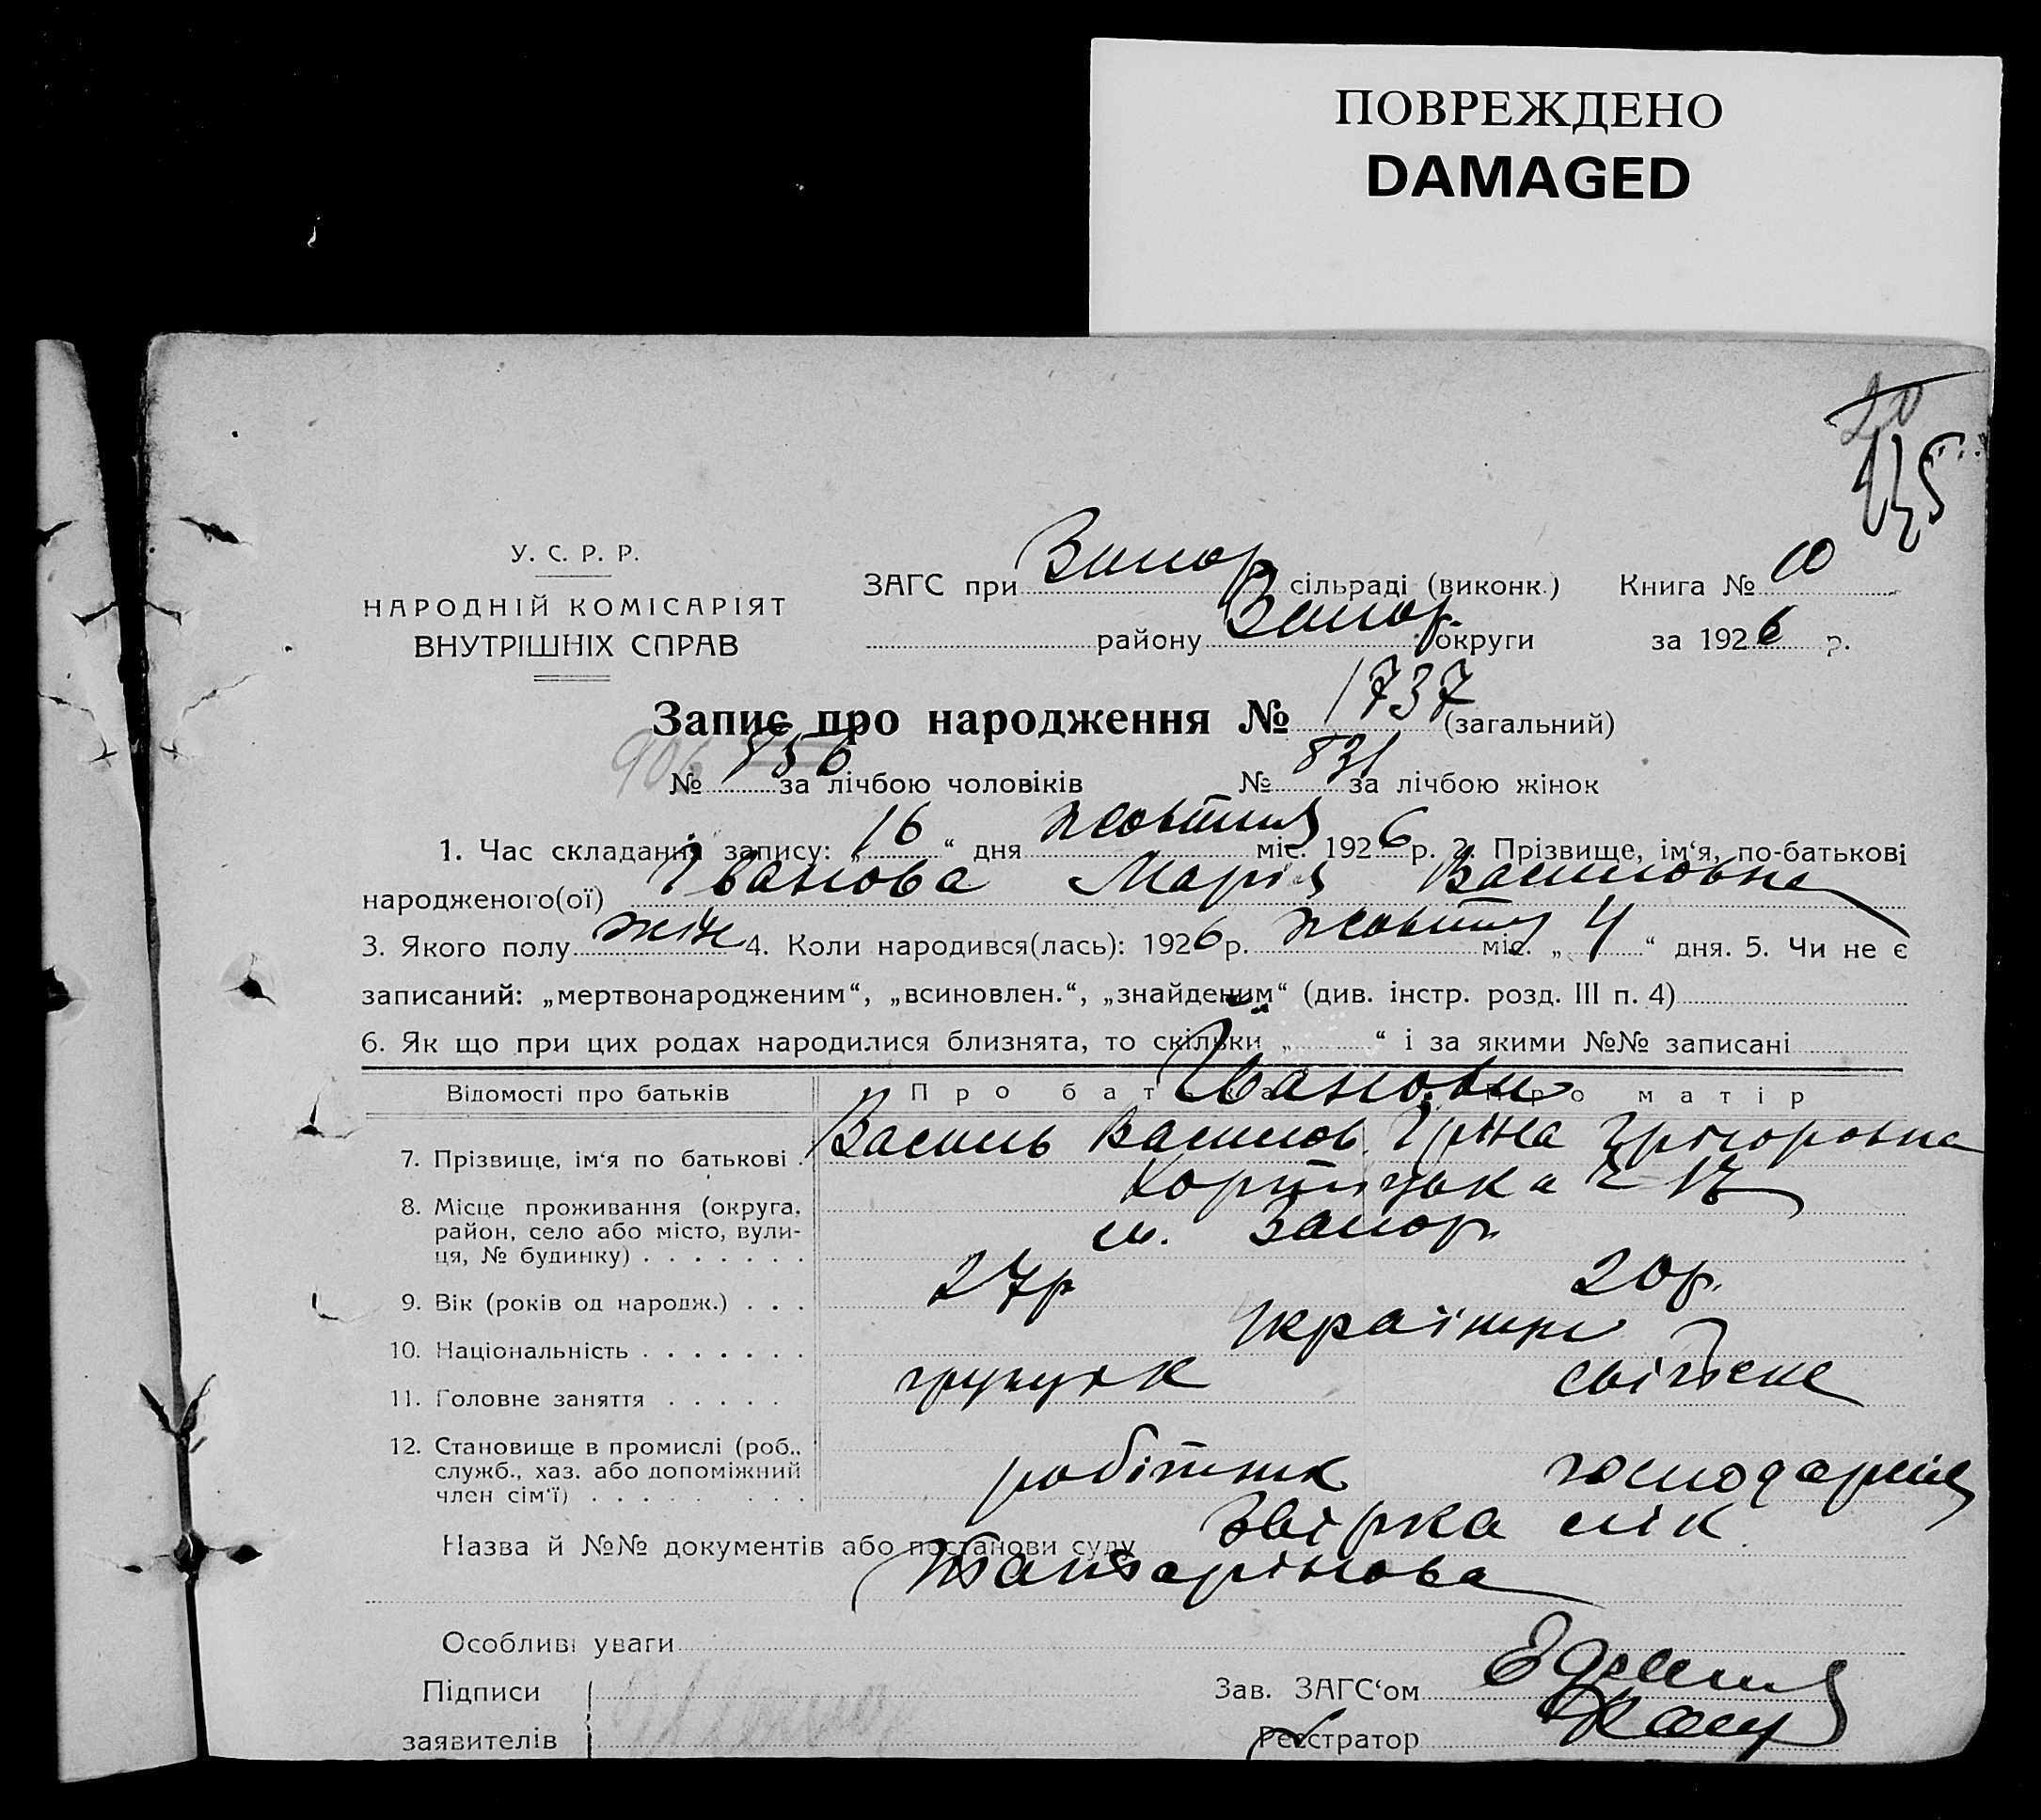 ПОВРЕЖДЕНО
DAMAGED
145
У. С. Р. Р.
НАРОДНІЙ КОМІСАРІЯТ
ВНУТРІШНІХ СПРАВ
ЗАГС при Запор сільраді (виконк.) Книга № 10
району Запор. округи за 1926 р.
Запис про народження № 1737 (загальний)
906 № 856 за лічбою чоловіків № 831 за лічбою жінок
1. Час складання запису: „16“ дня жовтня міс. 1926 р. 2. Прізвище, ім‘я, по-батькові
народженого(ої) Іванова Марія Василовна
3. Якого полу жін 4. Коли народився(лась): 1926 р. жовтня міс. „4“ дня. 5. Чи не є
записаний: „мертвонародженим“, „всиновлен.“, „знайденим“ (див. інстр. розд. III п. 4)
6. Як що при цих родах народилися близнята, то скільки „ “ і за якими №№ записані
Відомості про батьків Про бат Іванови про матір
7. Прізвище, ім‘я по батькові . Василь Василов. Іріна Грігоровна
8. Місце проживання (округа, Хортицька 17
район, село або місто, вули- м. Запор
ця, № будинку) . . . . . . .
9. Вік (років од народж.) . . . 27р 20р.
10. Національність . . . . . . . Українці
11. Головне заняття . . . . .
12. Становище в промислі (роб.,
служб., хаз. або допоміжний робітник господарка
член сім‘ї) . . . . . . . .
Назва й №№ документів або постанови суду Звірка лік
Татарінова
Особливі уваги
Підписи Зав. ЗАГС‘ом
заявителів Реєстратор